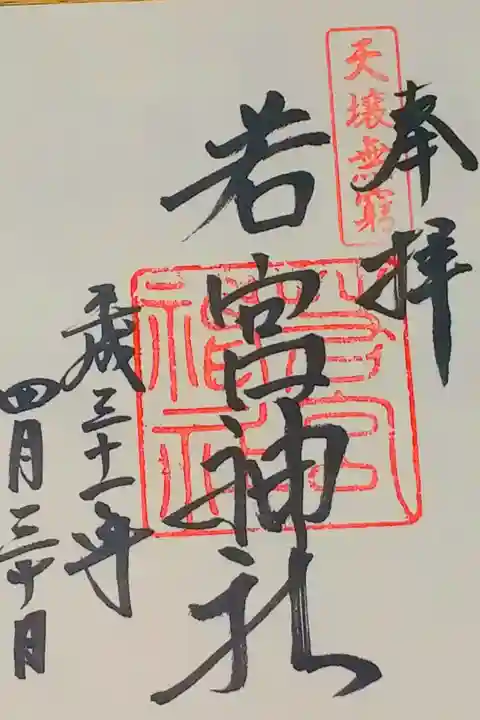 奉拝
天壌無窮
若宮神社
若宮神社
平成三十一年
四月三十日